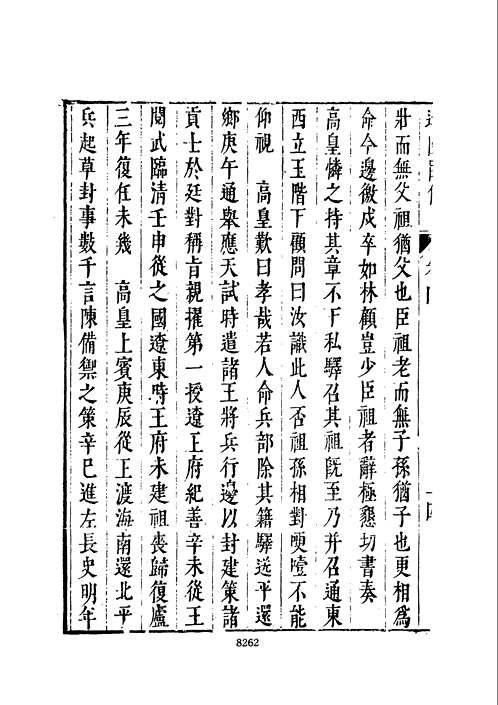 壯而無父祖猶父也臣祖老而無子孫猶子也更相為
命今邊徼戍卒如林顧豈少臣祖者辭極懇切書奏
高皇憐之持其章不下私驛召其祖既至乃并召通東
西立玉階下顧問曰汝識此人否祖孫相對哽噎不能
仰視　高皇歎曰孝哉若人命兵部除其籍驛送平還
鄉庚午通舉應天試時遣諸王將兵行邊以封建策諸
貢士於廷對稱旨親擢第一授遼王府紀善辛未從王
閱武臨清壬申從之國遼東時王府未建祖喪歸復廬
三年復任未幾　高皇上賓庚辰從王渡海南還北平
兵起草封事數千言陳備禦之策辛巳進左長史明年
8262